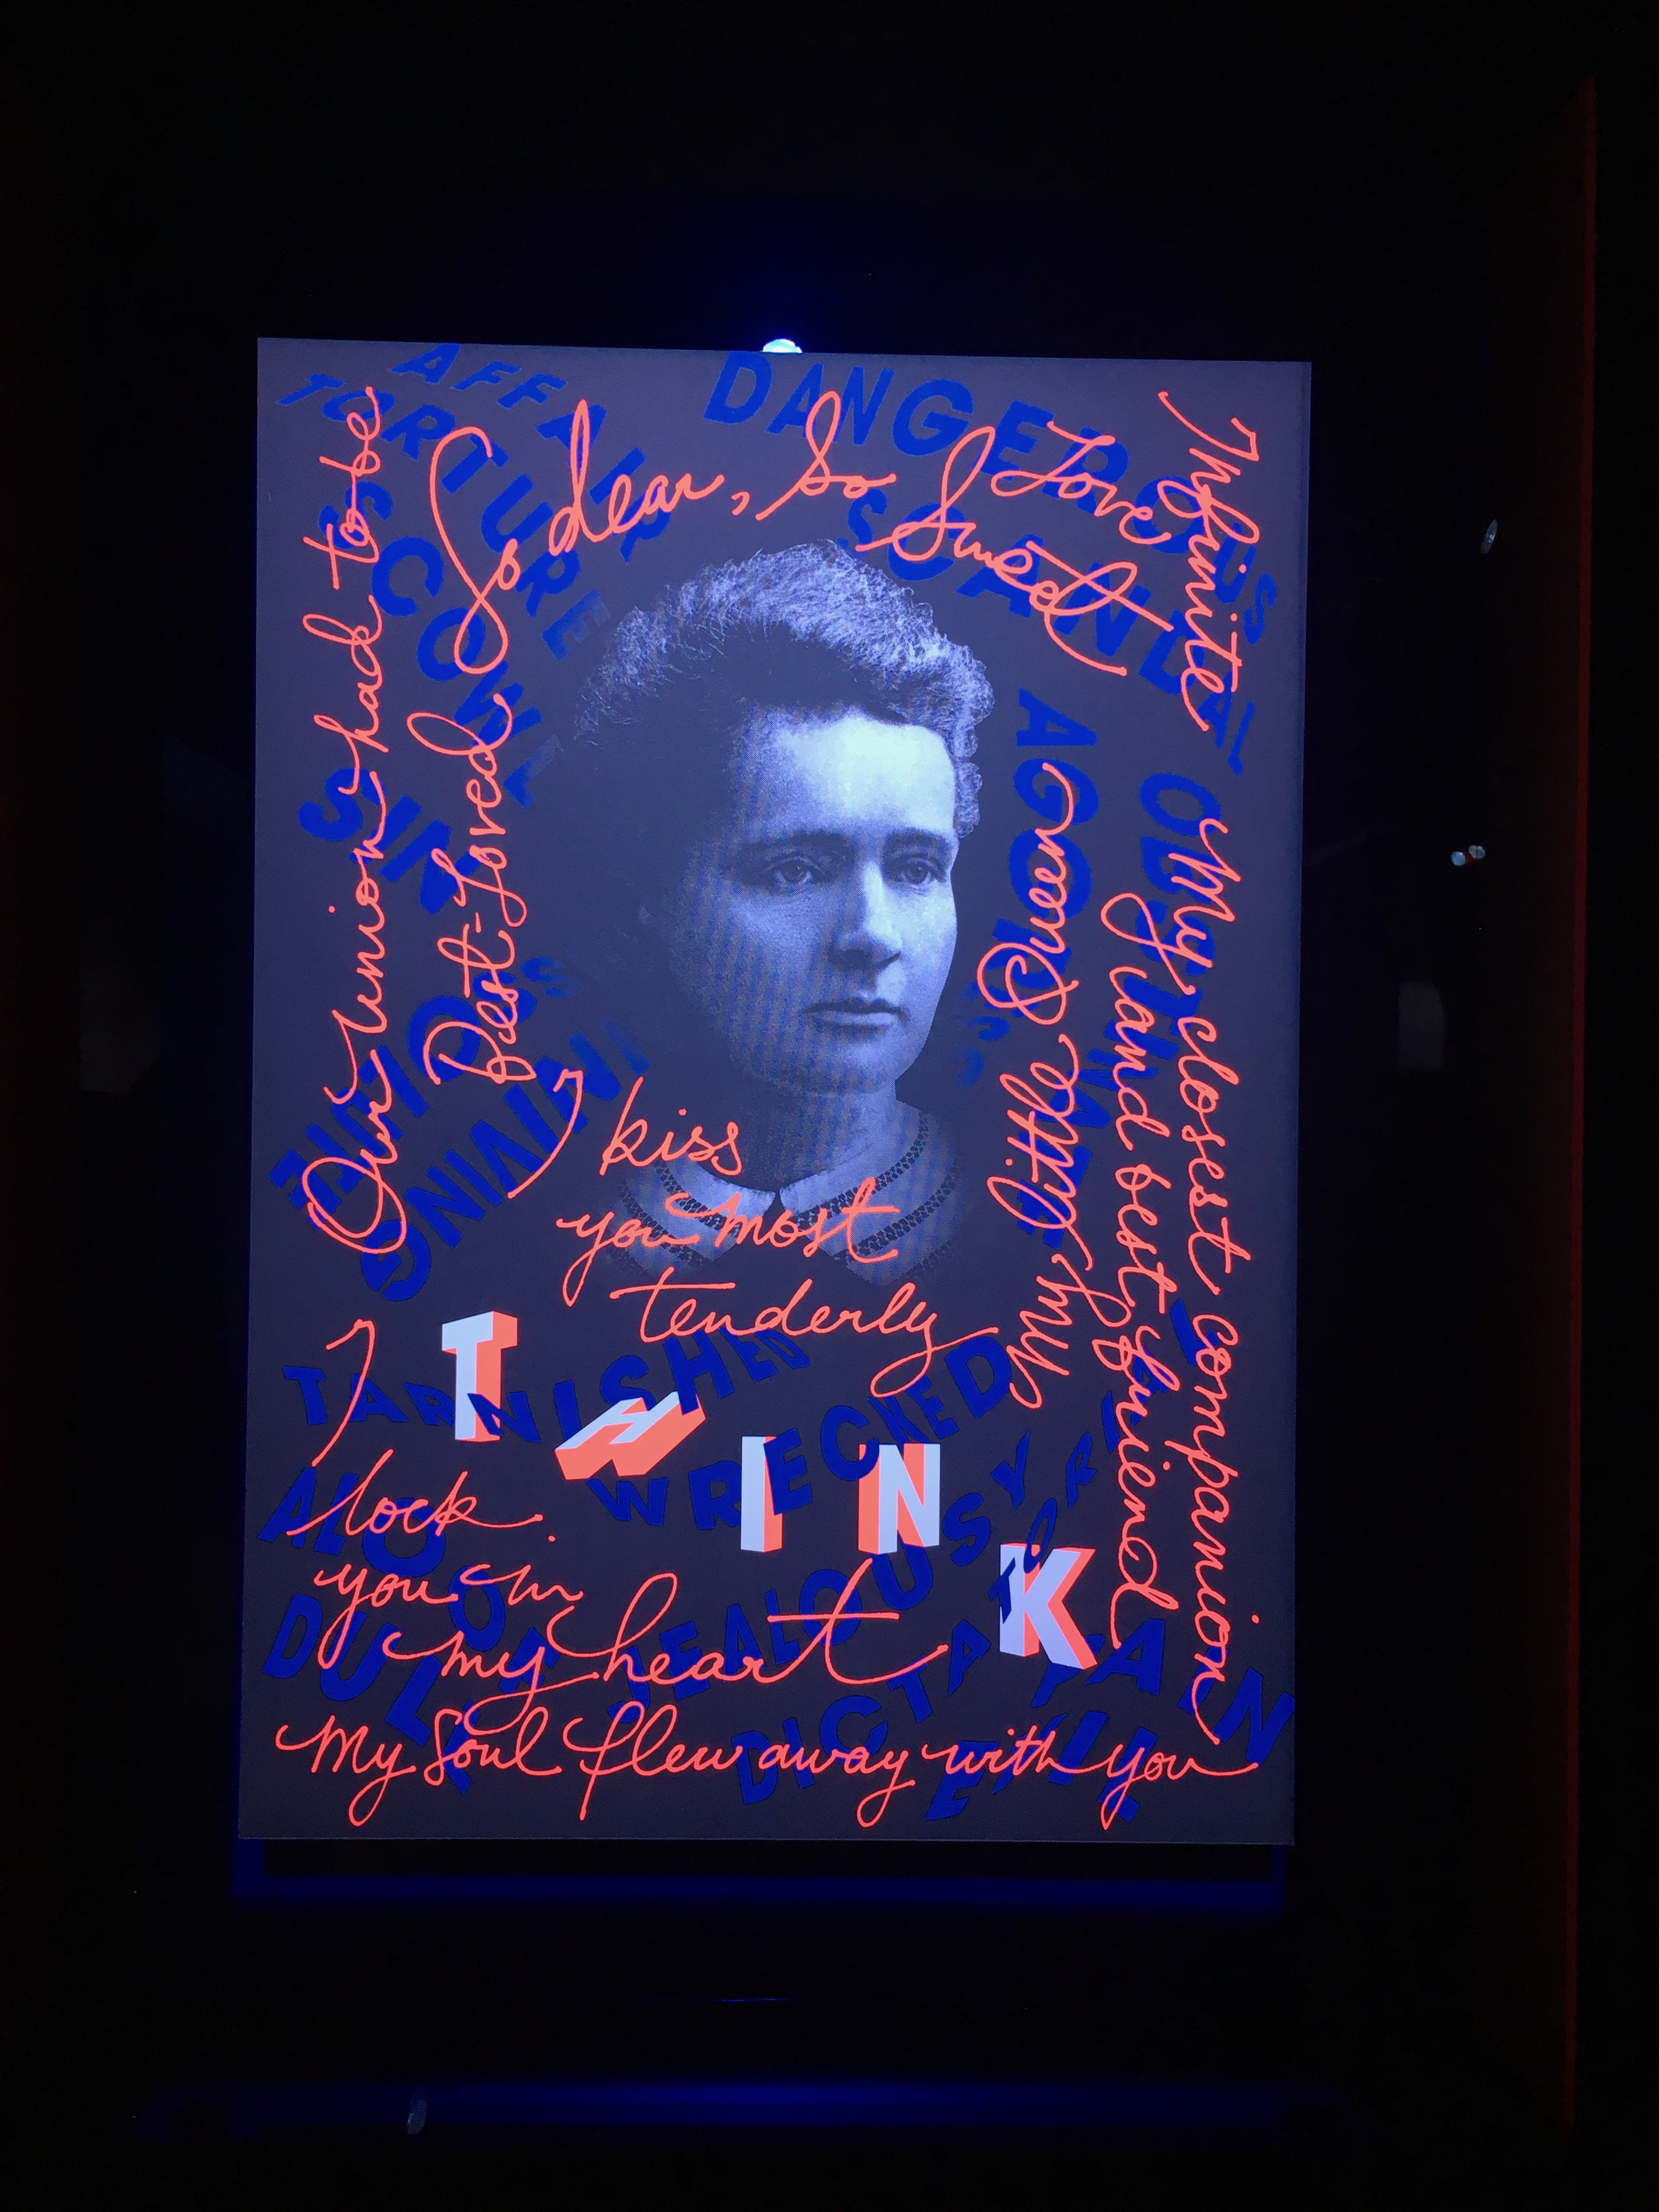 AFFAIR
TORTURE
SCOWL
SIN
DANGEROUS
SCANDAL
AGONIES
Our union had to be
Best-loved
So dear, So Sweet
Infinite
Love
My little Queen
My closest companion
and best friend
I kiss
you most
tenderly
THINK
TARNISHED
WRECKED
ALOOF
DULL
JEALOUSY
DICTATOR
EXIL
I
lock
you in
my heart
My Soul flew away with you